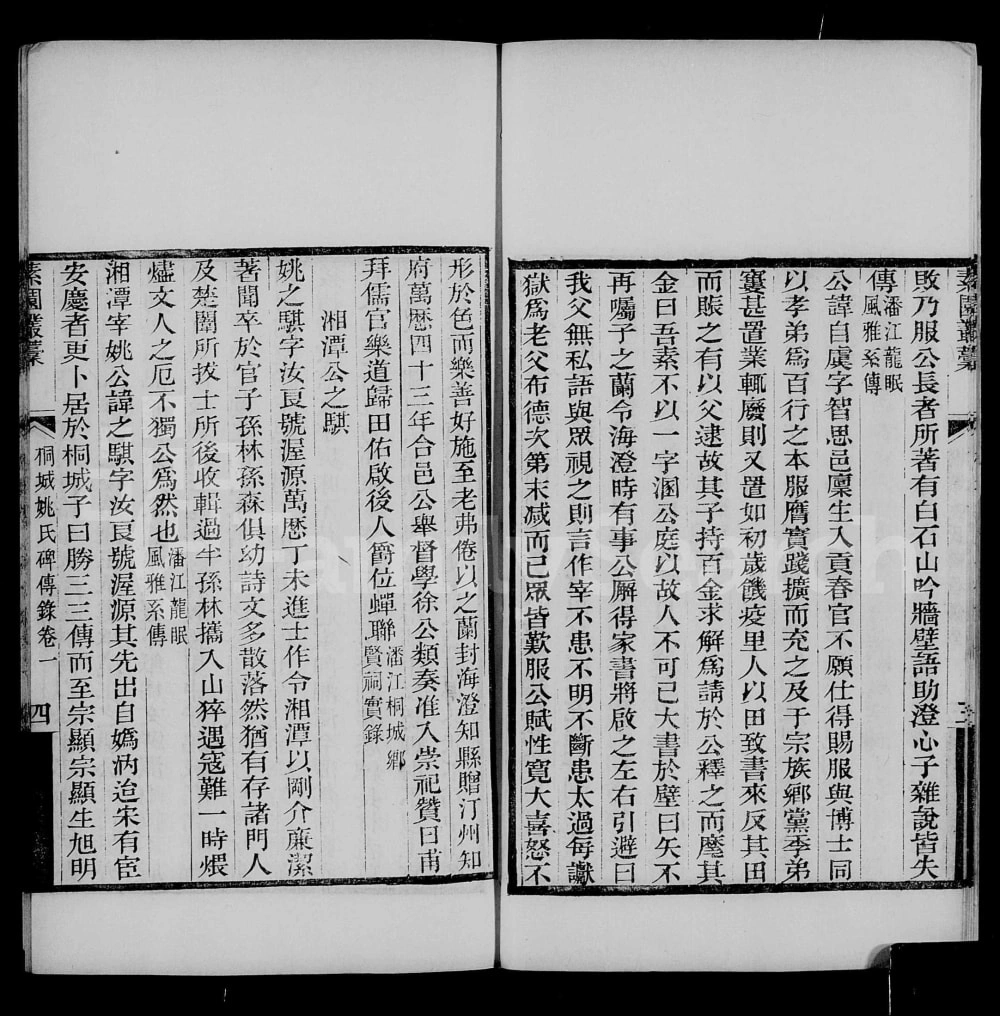 素園叢藁
敗乃服公長者所著有白石山吟牆壁語助澄心子雜說皆失
傳潘江龍眠風雅系傳
公諱自虞字智思邑廩生入貢春官不願仕得賜服與博士同
以孝弟爲百行之本服膺實踐擴而充之及于宗族鄉黨季弟
窶甚置業輒廢則又置如初歲饑疫里人以田致書來反其田
而賬之有以父逮故其子持百金求解爲請於公釋之而麾其
金曰吾素不以一字溷公庭以故人不可已大書於壁曰矢不
再囑子之蘭令海澄時有事公廨得家書將啟之左右引避曰
我父無私語與眾視之則言作宰不患不明不斷患太過每讞
獄爲老父布德次第末减而已眾皆歎服公賦性寬大喜怒不
形於色而樂善好施至老弗倦以之蘭封海澄知縣贈汀州知
府萬厯四十三年合邑公舉督學徐公類奏准入崇祀贊曰甫
拜儒官樂道歸田佑啟後人爵位蟬聯潘江桐城鄉賢祠實錄
湘潭公之騏
姚之騏字汝良號渥源萬厯丁未進士作令湘潭以剛介廉潔
著聞卒於官子孫林孫森俱幼詩文多散落然猶有存諸門人
及楚闈所拔士所後收輯過半孫林攜入山猝遇寇難一時煨
燼文人之厄不獨公爲然也潘江龍眠風雅系傳
湘潭宰姚公諱之騏字汝良號渥源其先出自嬀汭迨宋有宦
安慶者更卜居於桐城子曰勝三三傳而至宗顯宗顯生旭明
素園叢藁
桐城姚氏碑傳錄卷一
四